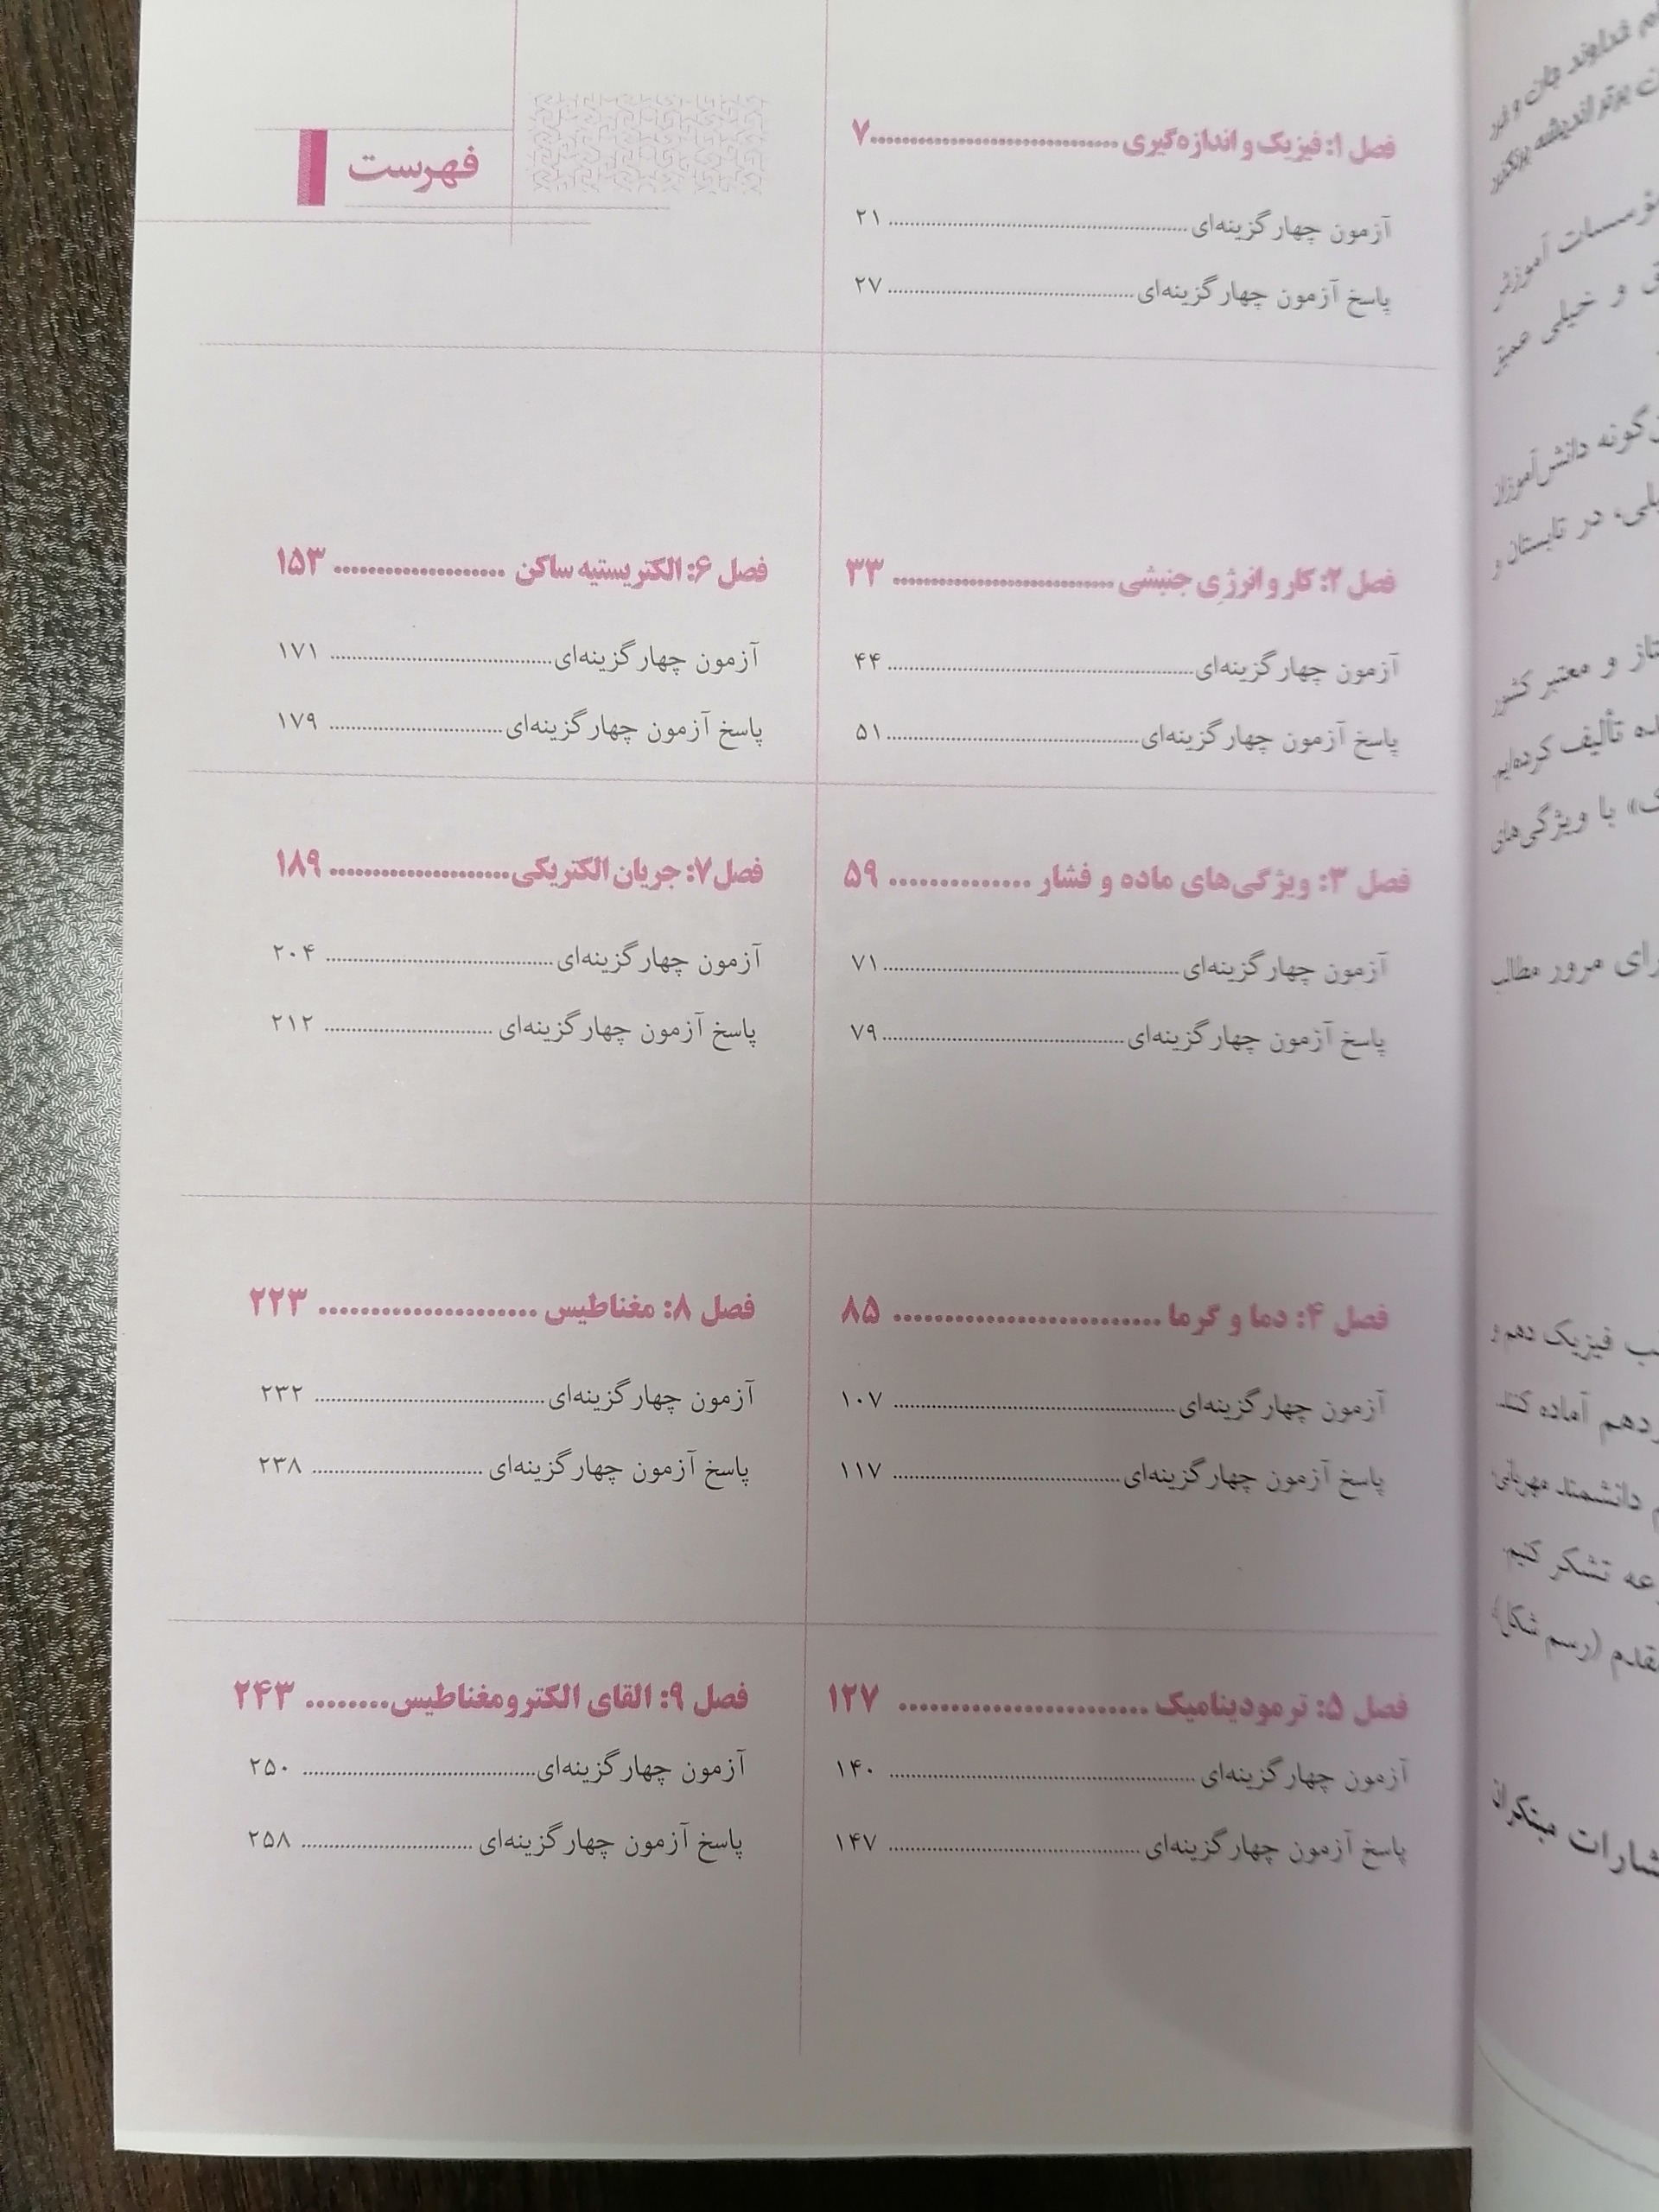 فهرست
فصل ۱: فیزیک و اندازه‌گیری..............................۷
آزمون چهارگزینه‌ای..............................۲۱
پاسخ آزمون چهارگزینه‌ای..............................۲۷
فصل ۲: کار و انرژِی جنبشی..............................۳۳
آزمون چهارگزینه‌ای..............................۴۴
پاسخ آزمون چهارگزینه‌ای..............................۵۱
فصل ۳: ویژگی‌های ماده و فشار..............۵۹
آزمون چهارگزینه‌ای..............................۷۱
پاسخ آزمون چهارگزینه‌ای..............................۷۹
فصل ۴: دما و گرما..........................۸۵
آزمون چهارگزینه‌ای..............................۱۰۷
پاسخ آزمون چهارگزینه‌ای..............................۱۱۷
فصل ۵: ترمودینامیک........................۱۲۷
آزمون چهارگزینه‌ای..............................۱۴۰
پاسخ آزمون چهارگزینه‌ای..............................۱۴۷
فصل ۶: الکتریسیته ساکن....................۱۵۳
آزمون چهارگزینه‌ای..............................۱۷۱
پاسخ آزمون چهارگزینه‌ای..............................۱۷۹
فصل ۷: جریان الکتریکی.....................۱۸۹
آزمون چهارگزینه‌ای..............................۲۰۴
پاسخ آزمون چهارگزینه‌ای..............................۲۱۲
فصل ۸: مغناطیس.....................۲۲۳
آزمون چهارگزینه‌ای..............................۲۳۲
پاسخ آزمون چهارگزینه‌ای..............................۲۳۸
فصل ۹: القای الکترومغناطیس........۲۴۳
آزمون چهارگزینه‌ای..............................۲۵۰
پاسخ آزمون چهارگزینه‌ای..............................۲۵۸
خداوند جان و
برتر اندیشه
آموزش
و خیلی
دانش‌آموزان
در تابستان و
و معتبر کشور
تألیف کرده‌ایم
با ویژگی‌های
مرور مطالب
فیزیک دهم و
آماده کنند
دانشمند
تشکر کنیم
(رسم شکل)